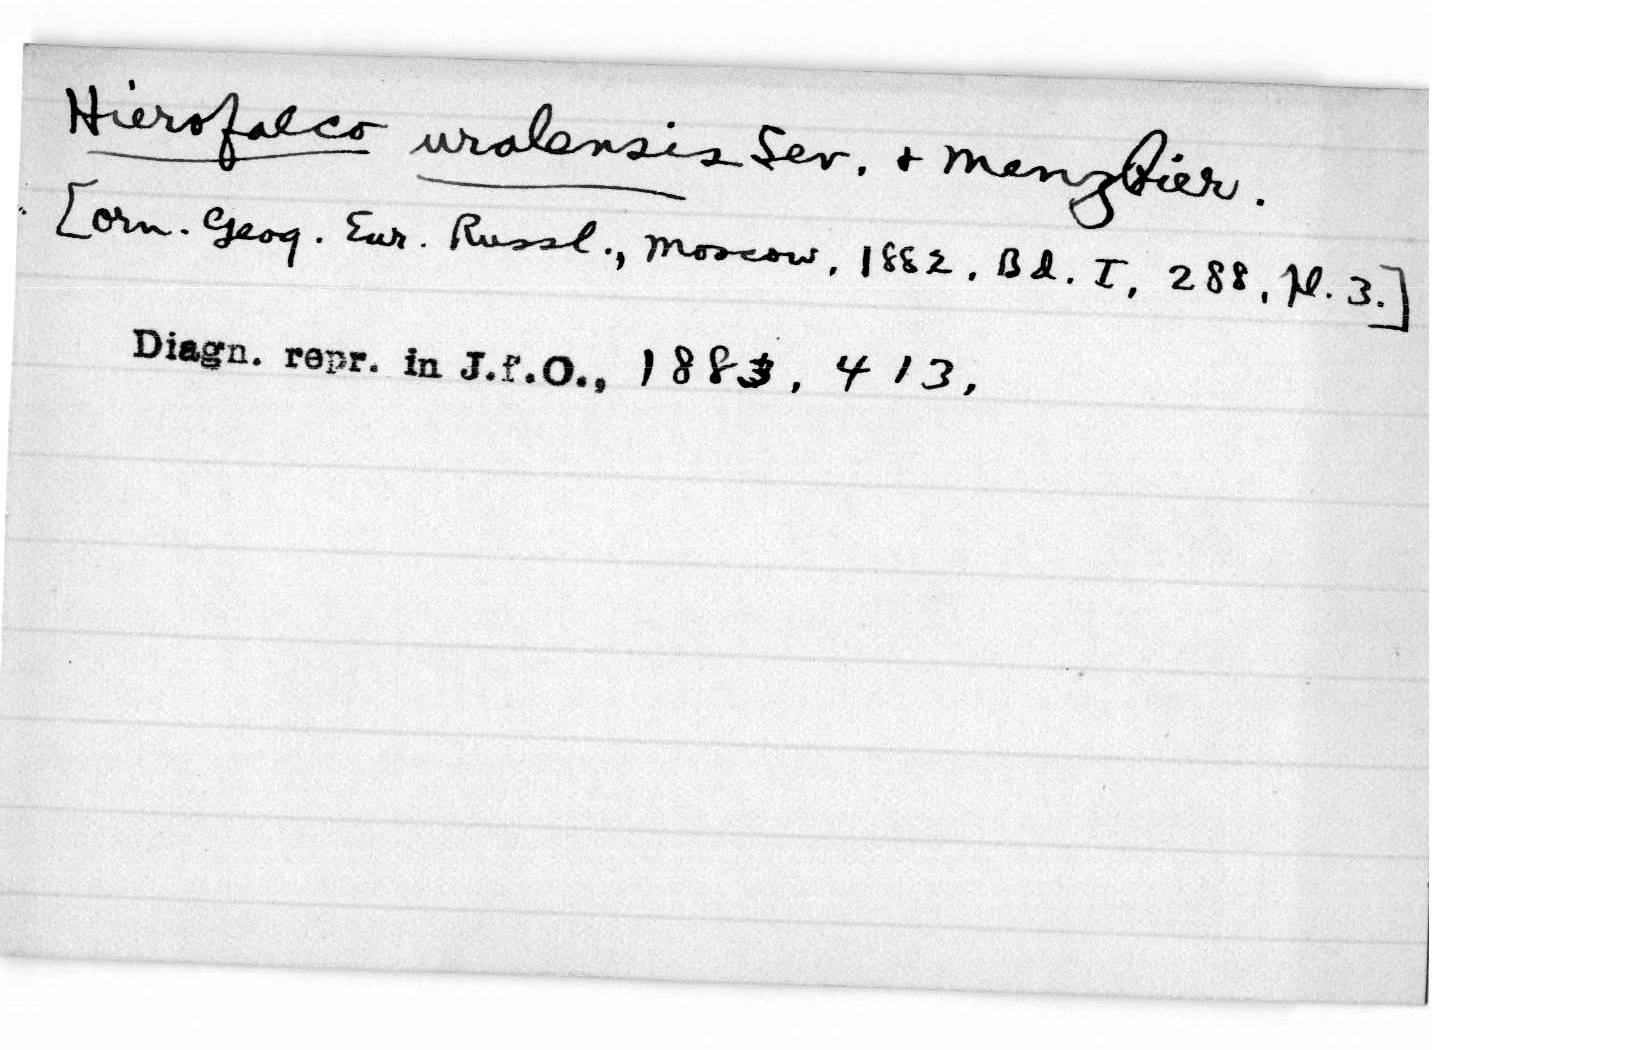 Hierofalco uralensis Sev. & Menzbier.
[Orn. Geog. Eur. Russl., Moscow, 1882, Bd. I, 288, Pl. 3.]
Diagn. repr. in J.f.O., 1883, 413,